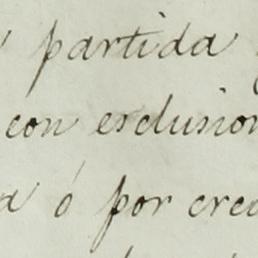 partida
con esclusion
ó por crea